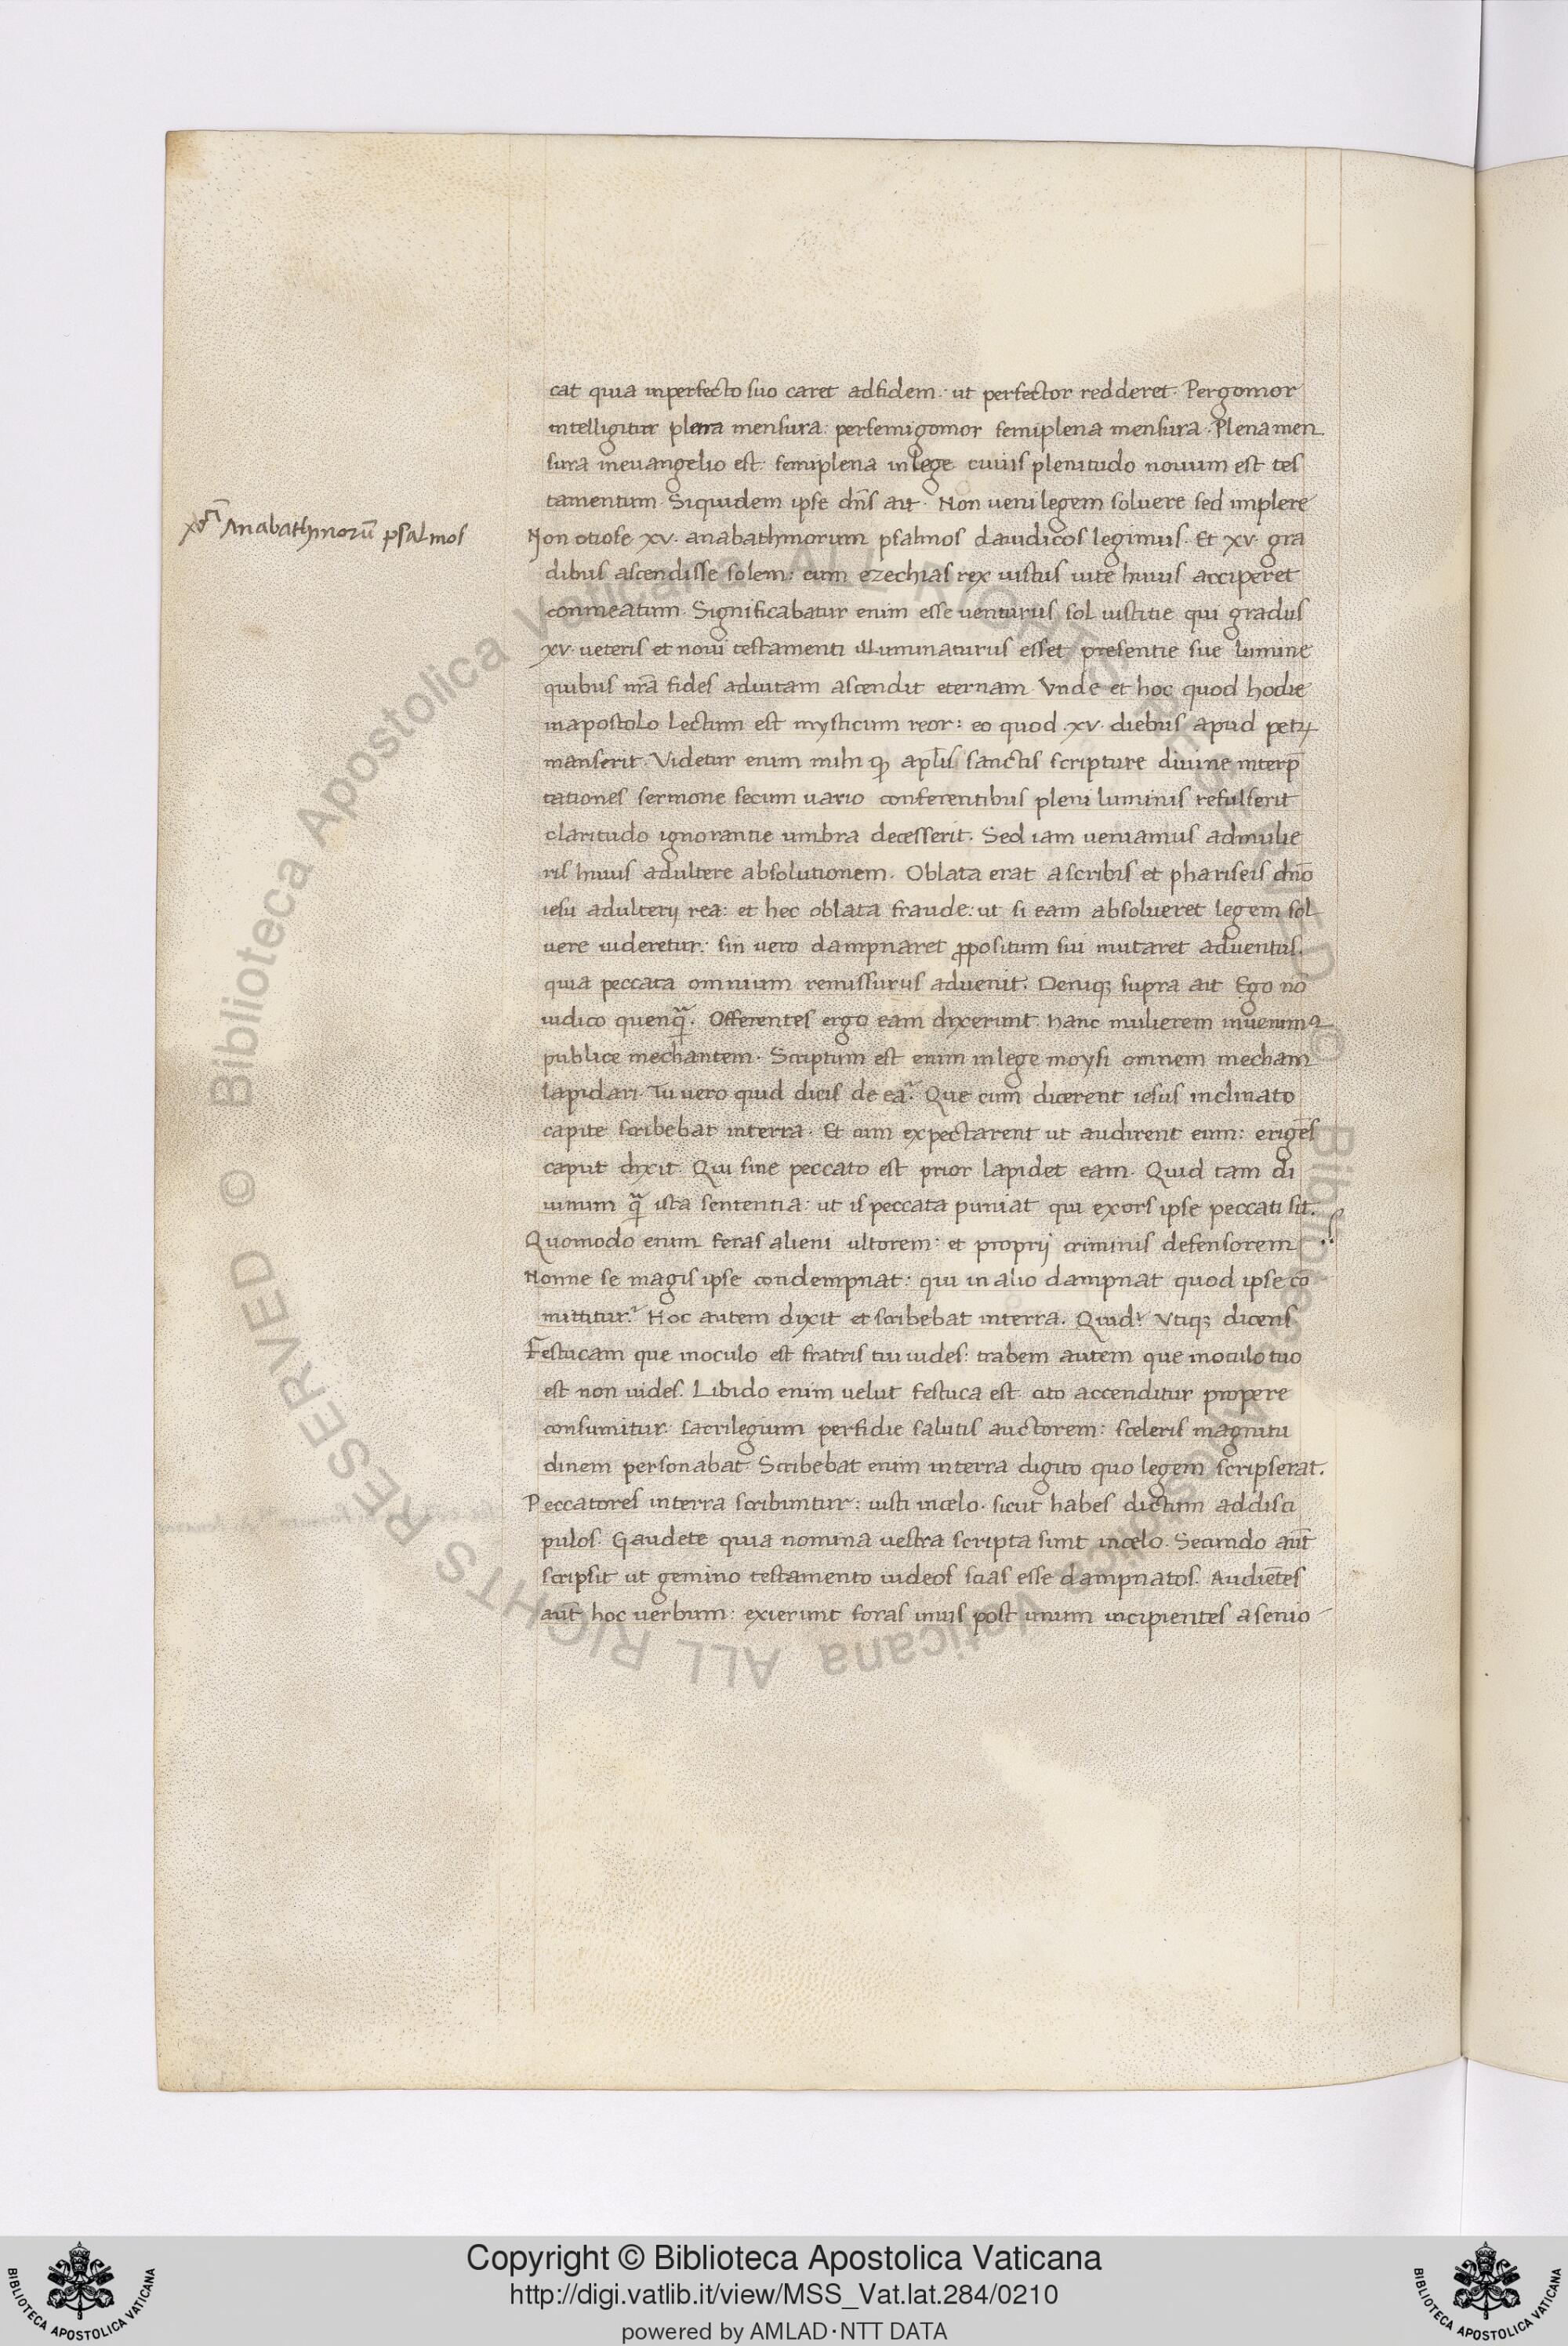 cat quia inperfecto suo caret adfidem. ut perfectior redderet. Pergomor
intelligitur plena mensura: persemigomor semiplena mensura. Plenamen
sura ineuangelio est. semiplena inlege. cuius plenitudo nouum est tes
tamentum. Siquidem ipse dn̄s ait. Non ueni legem soluere sed implere
xvᵐ Anabathmorū psalmos
Non otiose xv. anabathmorum psalmos dauidicos legimus. Et xv. gra
dibus ascendisse solem: cum ezechias rex iustus uite huius acciperet
conmeatum. Significabatur enim esse uenturus sol iustitie qui gradus
xv. ueteris et noui testamenti illuminaturus esset presentie sue lumine
quibus nr̄a fides aduitam ascendit eternam. Vnde et hoc quod hodie
inapostolo lectum est mysticum reor: eo quod .xv. diebus apud petꝝ
manserit. Videtur enim mihi qꝫ apl̄s sanctis scripture diuine interp̄
tationes sermone secum uario conferentibus pleni luminis refulserit
claritudo ignorantie umbra decesserit. Sed iam ueniamus admulie
ris huius adultere absolutionem. Oblata erat ascribis et phariseis dn̄o
iesu adulterij rea: et hec oblata fraude: ut si eam absolueret legem sol
uere uideretur: sin uero dampnaret ꝓpositum sui mutaret aduentus.
quia peccata omnium remissurus aduenit. Deniqꝫ supra ait Ego nō
iudico quenqᷓ. Offerentes ergo eam dixerunt. hanc mulierem inuenimꝰ
publice mechantem. Scriptum est enim inlege moysi omnem mecham
lapidari. Tu uero quid dicis de ea? Que cum dicerent iesus inclinato
capite scribebat interra. Et cum expectarent ut audirent eum: erigēs
caput dixit. Qui sine peccato est prior lapidet eam. Quid tam di
uinum qᷓ ista sententia: ut is peccata puniat qui exors ipse peccati sit.
Quomodo enim feras alieni ultorem: et proprij criminis defensorem
Nonne se magis ipse condempnat: qui in alio dampnat quod ipse cō
mittitur? Hoc autem dixit et scribebat interra. Quid? Vtiqꝫ dicens
Festucam que inoculo est fratris tui uides: trabem autem que inoculo tuo
est non uides. Libido enim uelut festuca est cito accenditur propere
consumitur. sacrilegium perfidie salutis auctorem: sceleris magnitu
dinem personabat. Scribebat enim interra digito quo legem scripserat.
Peccatores interra scribuntur: iusti incelo. sicut habes dictum addisci
pulos. Gaudete quia nomina uestra scripta sunt incelo. Secundo aūt
scripsit ut gemino testamento iudeos scias esse dampnatos. Audiētes
aūt hoc uerbum: exierunt foras unus post unum incipientes asenio
Copyright © Biblioteca Apostolica Vaticana
http://digi.vatlib.it/view/MSS_Vat.lat.284/0210
powered by AMLAD·NTT DATA
BIBLIOTECA APOSTOLICA VATICANA
BIBLIOTECA APOSTOLICA VATICANA